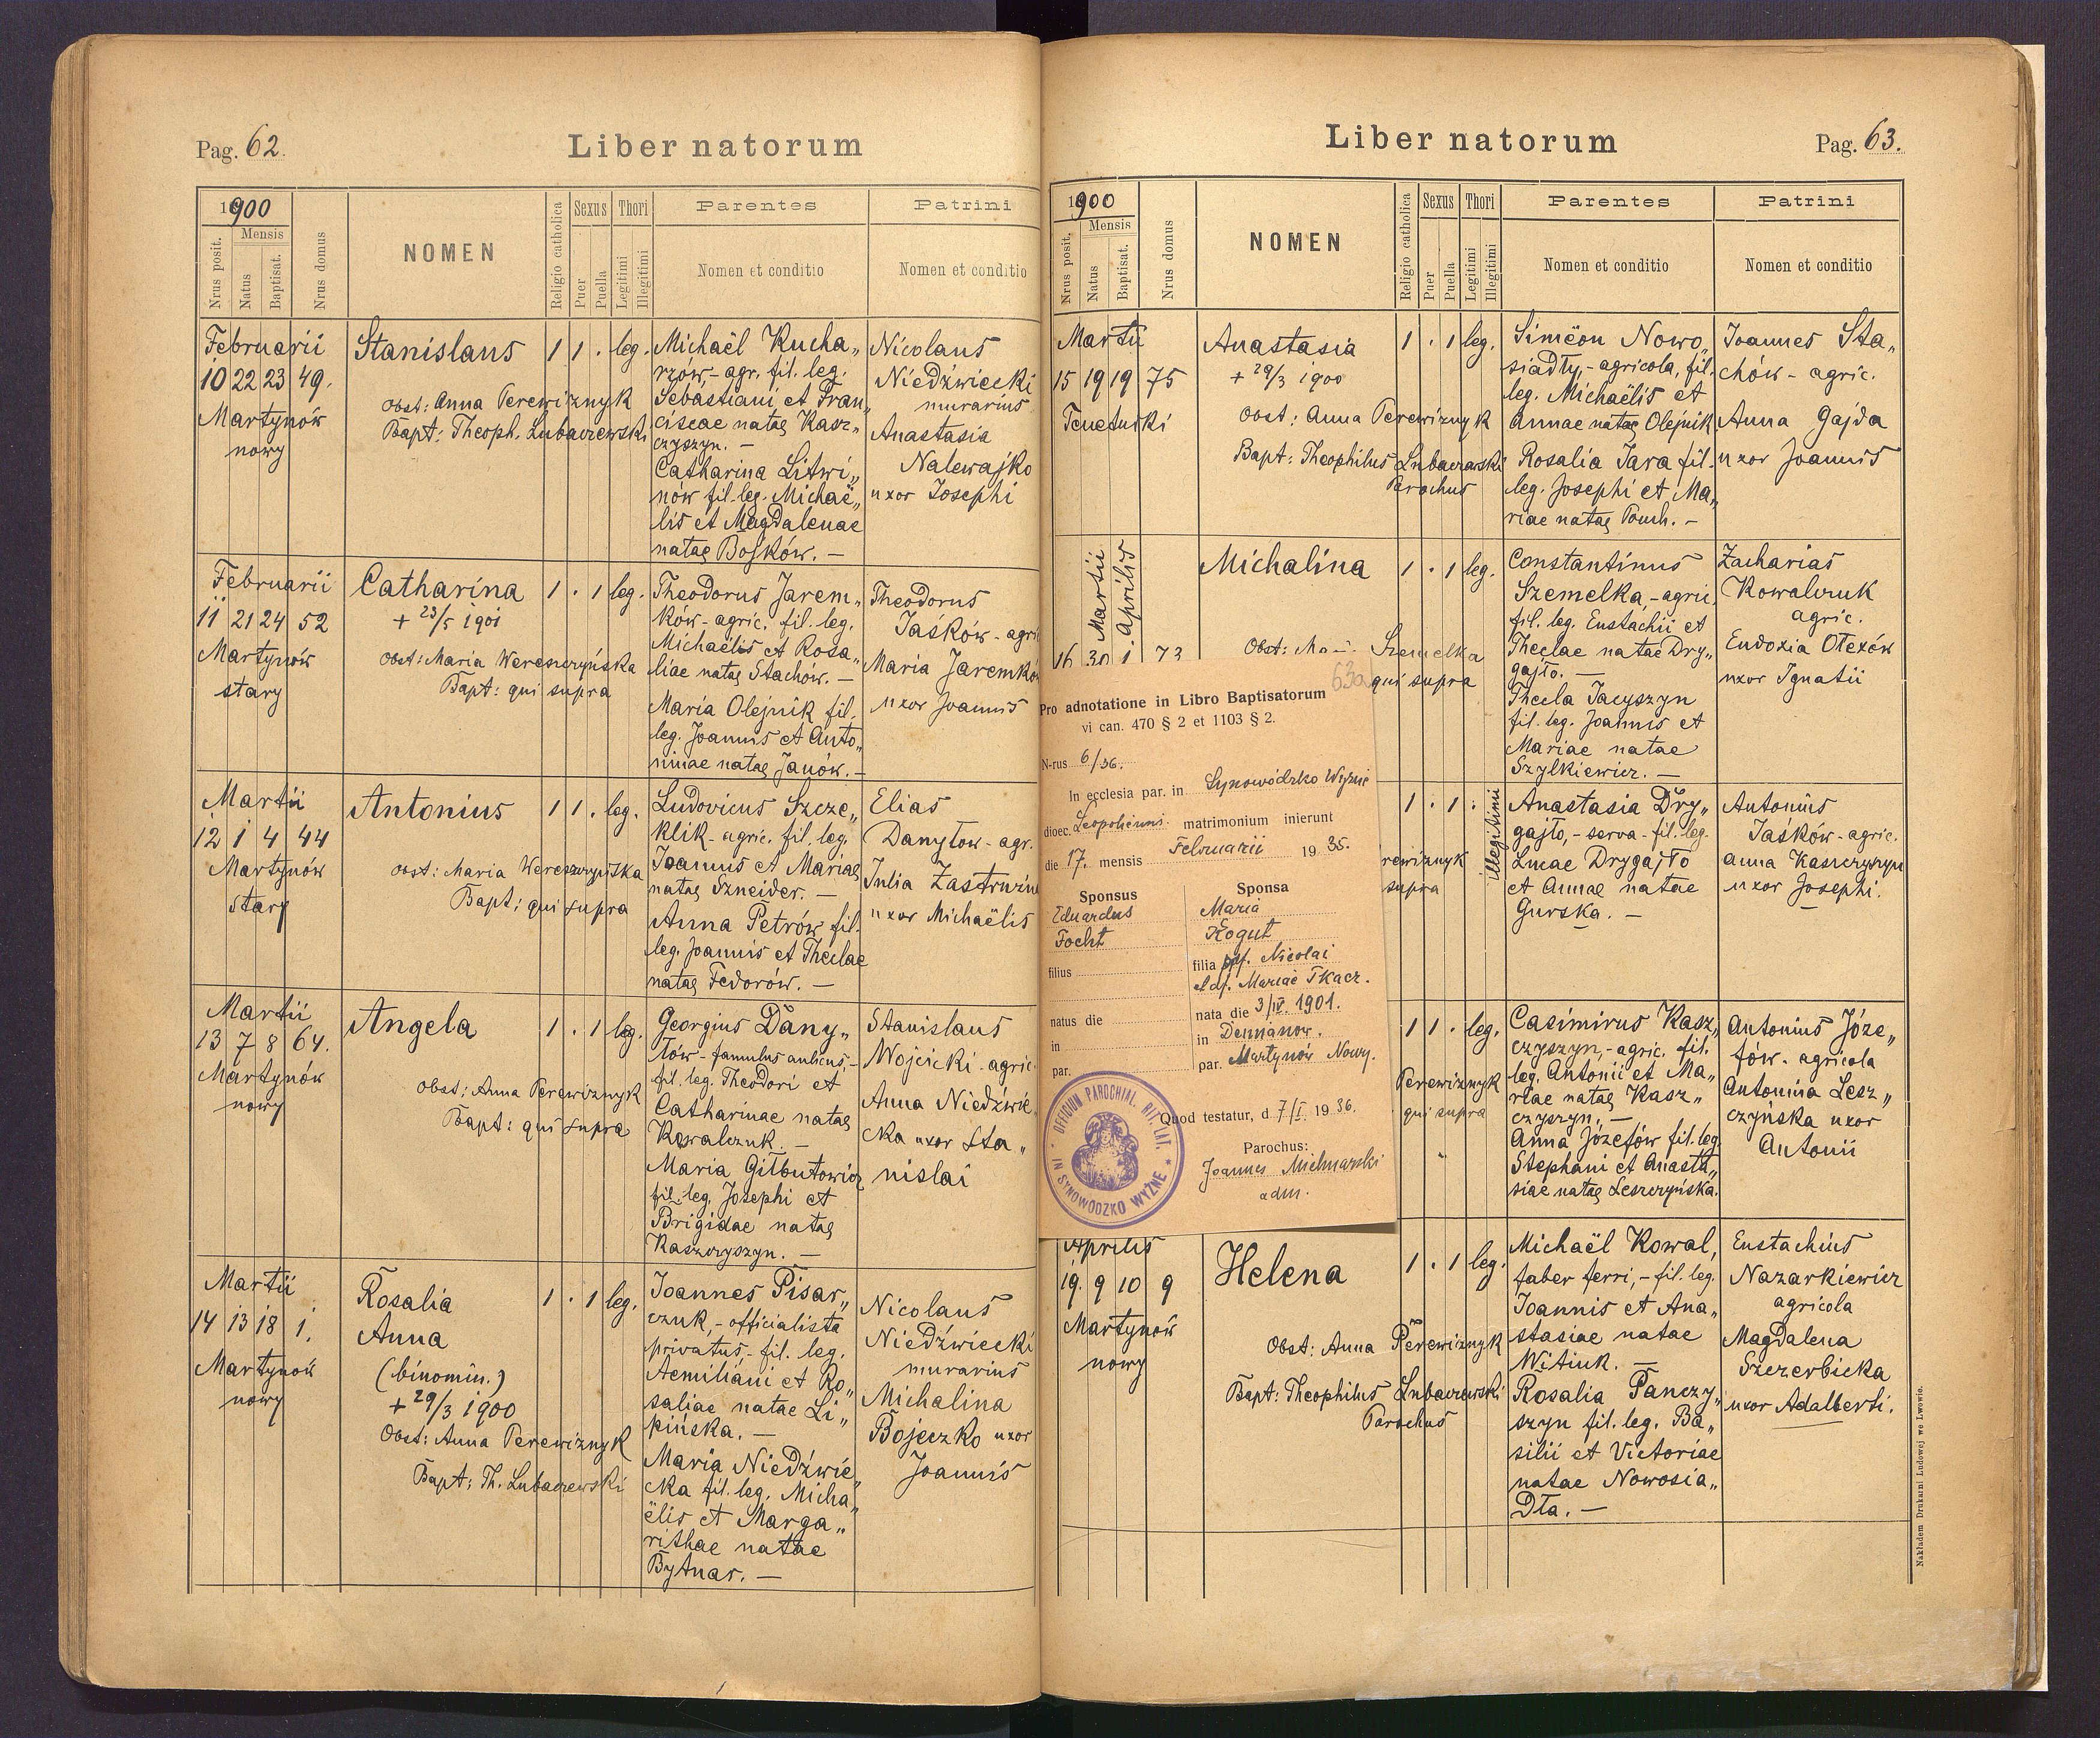 Pag. 62.
Liber natorum
1900
Mensis
Nrus posit.
Natus
Baptisat.
Nrus domus
NOMEN
Religio catholica
Sexus
Puer
Puella
Thori
Legitimi
Illegitimi
Parentes
Nomen et conditio
Patrini
Nomen et conditio
Februarii
10 22 23 49.
Martynów
nowy
Stanislaus
Obst: Anna Perewiznyk
Bapt: Theoph. Lubaczewski
1 1 . leg.
Michaël Kucha„
rzów,- agr. fil. leg.
Sebastiani et Fran„
ciscae natae Kasz„
czyszyn. –
Catharina Litwi„
nów fil. leg. Michaë„
lis et Magdalenae
natae Bojków. –
Nicolaus
Niedźwiecki
murarius
Anastasia
Nalewajko
uxor Josephi
Februarii
11 21 24 52
Martynów
stary
Catharina
+ 23/5 1901
Obst: Maria Wereszczyńska
Bapt: qui supra
1 . 1 leg.
Theodorus Jarem„
ków - agric. fil. leg.
Michaëlis et Rosa„
liae natae Stachów. –
Maria Olejnik fil.
leg. Joannis et Anto„
ninae natae Janów. –
Theodorus
Jaśków - agri
Maria Jaremków
uxor Joannis
Martii
12 1 4 44
Martynów
stary
Antonius
Obst: Maria Wereszczyńska
Bapt: qui supra
1 1 . leg.
Ludovicus Szcze„
klik - agric. fil. leg.
Joannis et Mariae
natae Szneider. –
Anna Petrów fil.
leg. Joannis et Theclae
natae Fedorów. –
Elias
Danyłow - agr.
Julia
uxor Michaëlis
Martii
13 7 8 64.
Martynów
nowy
Angela
Obst: Anna Perewiznyk
Bapt: qui supra
1 . 1 leg.
Georgius Dany„
łów - famulus aulicus,-
fil. leg. Theodori et
Catharinae natae
Kowalczuk. –
Maria Giłbutowicz
fil. leg. Josephi et
Brigidae natae
Kaszczyszyn. –
Stanislaus
Wojcicki - agric.
Anna Niedźwie„
cka uxor Sta„
nislai
Martii
14 13 18 1.
Martynów
nowy
Rosalia
Anna
(binomin.)
+ 29/3 1900
Obst: Anna Perewiznyk
Bapt: Th. Lubaczewski
1 . 1 leg.
Joannes Pisar„
czuk,- officialista
privatus,- fil. leg.
Aemiliani et Ro„
saliae natae Li„
pińska. –
Maria Niedźwie„
cka fil. leg. Micha„
ëlis et Marga„
rithae natae
Bytnar. –
Nicolaus
Niedźwiecki
murarius
Michalina
Bojeczko uxor
Joannis
Liber natorum
Pag. 63.
1900
Mensis
Nrus posit.
Natus
Baptisat.
Nrus domus
NOMEN
Religio catholica
Sexus
Puer
Puella
Thori
Legitimi
Illegitimi
Parentes
Nomen et conditio
Patrini
Nomen et conditio
Martii
15 19 19 75
Tenetniki
Anastasia
+ 29/3 1900
Obst: Anna Perewiznyk
Bapt: Theophilus Lubaczewski
Parochus
1 . 1 leg.
Simëon Nowo„
siadły,- agricola, fil.
leg. Michaëlis et
Annae natae Olejnik
Rosalia Jara fil.
leg. Josephi et Ma„
riae natae Pouch. –
Joannes Sta„
chów - agric.
Anna Gajda
uxor Joannis
Martii
Aprilis
16 30 1 73
Michalina
Szemelka
qui supra
1 . 1 leg.
Constantinus
Szemelka,- agric.
fil. leg. Eustachii et
Theclae natae Dry„
gajło. –
Thecla Jacyszyn
fil. leg. Joannis et
Mariae natae
Szylkiewicz. –
Zacharias
Kowalczuk
agric.
Eudoxia Otexów
uxor Ignatii
63a
Pro adnotatione in Libro Baptisatorum
vi can. 470 § 2 et 1103 § 2.
N-rus 6/36.
In ecclesia par. in Synowódzko Wyżnie
dioec. Leopolienni. matrimonium inierunt
die 17. mensis Februarii 19 35.
Sponsus
Eduardus
Focht
filius
natus die
in
par.
Sponsa
Maria
Kogut
filia def. Nicolai
et def. Mariae Tkacz.
nata die 3/IV. 1901.
in Demianow.
par. Martynów Nowy.
Quod testatur, d. 7/I. 19 36.
Parochus:
Joannes Michnarski
adm.
OFFICIUM PAROCHIAL. RIT. LAT.
IN SYNOWODZKO WYŻNE
rewiznyk
supra
1 . 1 .
illegitimi
Anastasia Dry„
gajło,- serva - fil. leg.
Lucae Drygajło
et Annae natae
Gurska. –
Antonius
Jaśków - agric.
Anna Kaszczyszyn
uxor Josephi.
Perewiznyk
qui supra
1 1 . leg.
Casimirus Kasz„
czyszyn,- agric. fil.
leg. Antonii et Ma„
riae natae Kasz„
czyszyn. –
Anna Józefów fil. leg.
Stephani et Anasta„
siae natae Leszczyńska.
Antonius Józe„
fów - agricola
Antonina Lesz„
czyńska uxor
Antonii
Aprilis
19. 9 10 9
Martynów
nowy
Helena
Obst: Anna Perewiznyk
Bapt: Theophilus Lubaczewski
Parochus
1 . 1 leg.
Michaël Kowal,
faber ferri,- fil. leg.
Joannis et Ana„
stasiae natae
Witiuk. –
Rosalia Panczy„
szyn fil. leg. Ba„
silii et Victoriae
natae Nowosia„
dła. –
Eustachius
Nazarkiewicz
agricola
Magdalena
Szczerbicka
uxor Adalberti.
Nakładem Drukarni Ludowej we Lwowie.